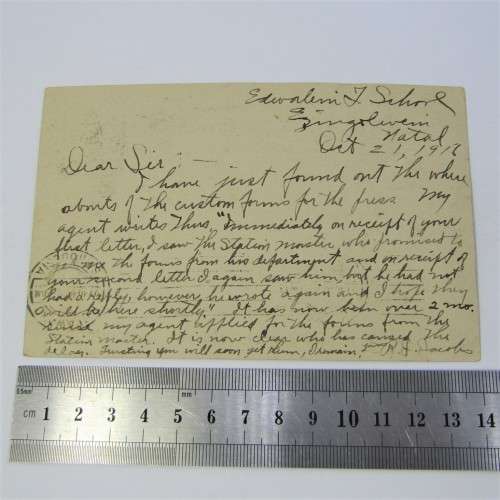 School
Natal
Oct 21, 191
Dear Sir
I have just found out the where
abouts of the custom forms for the press My
agent writes thus, "Immediately on receipt of your
first letter, I saw the Station master who promised to
get me the forms from his department and on receipt of
your second letter I again saw him, but he had not
had a reply, however he wrote again and I hope they
will be here shortly." It has now been over 2 mo.
since my agent applied for the forms from the
Station master. It is now clear who has caused the
delay. Trusting you will soon get them, I remain, Jacobs
0.5mm
cm 1 2 3 4 5 6 7 8 9 10 11 12 13 14
mm